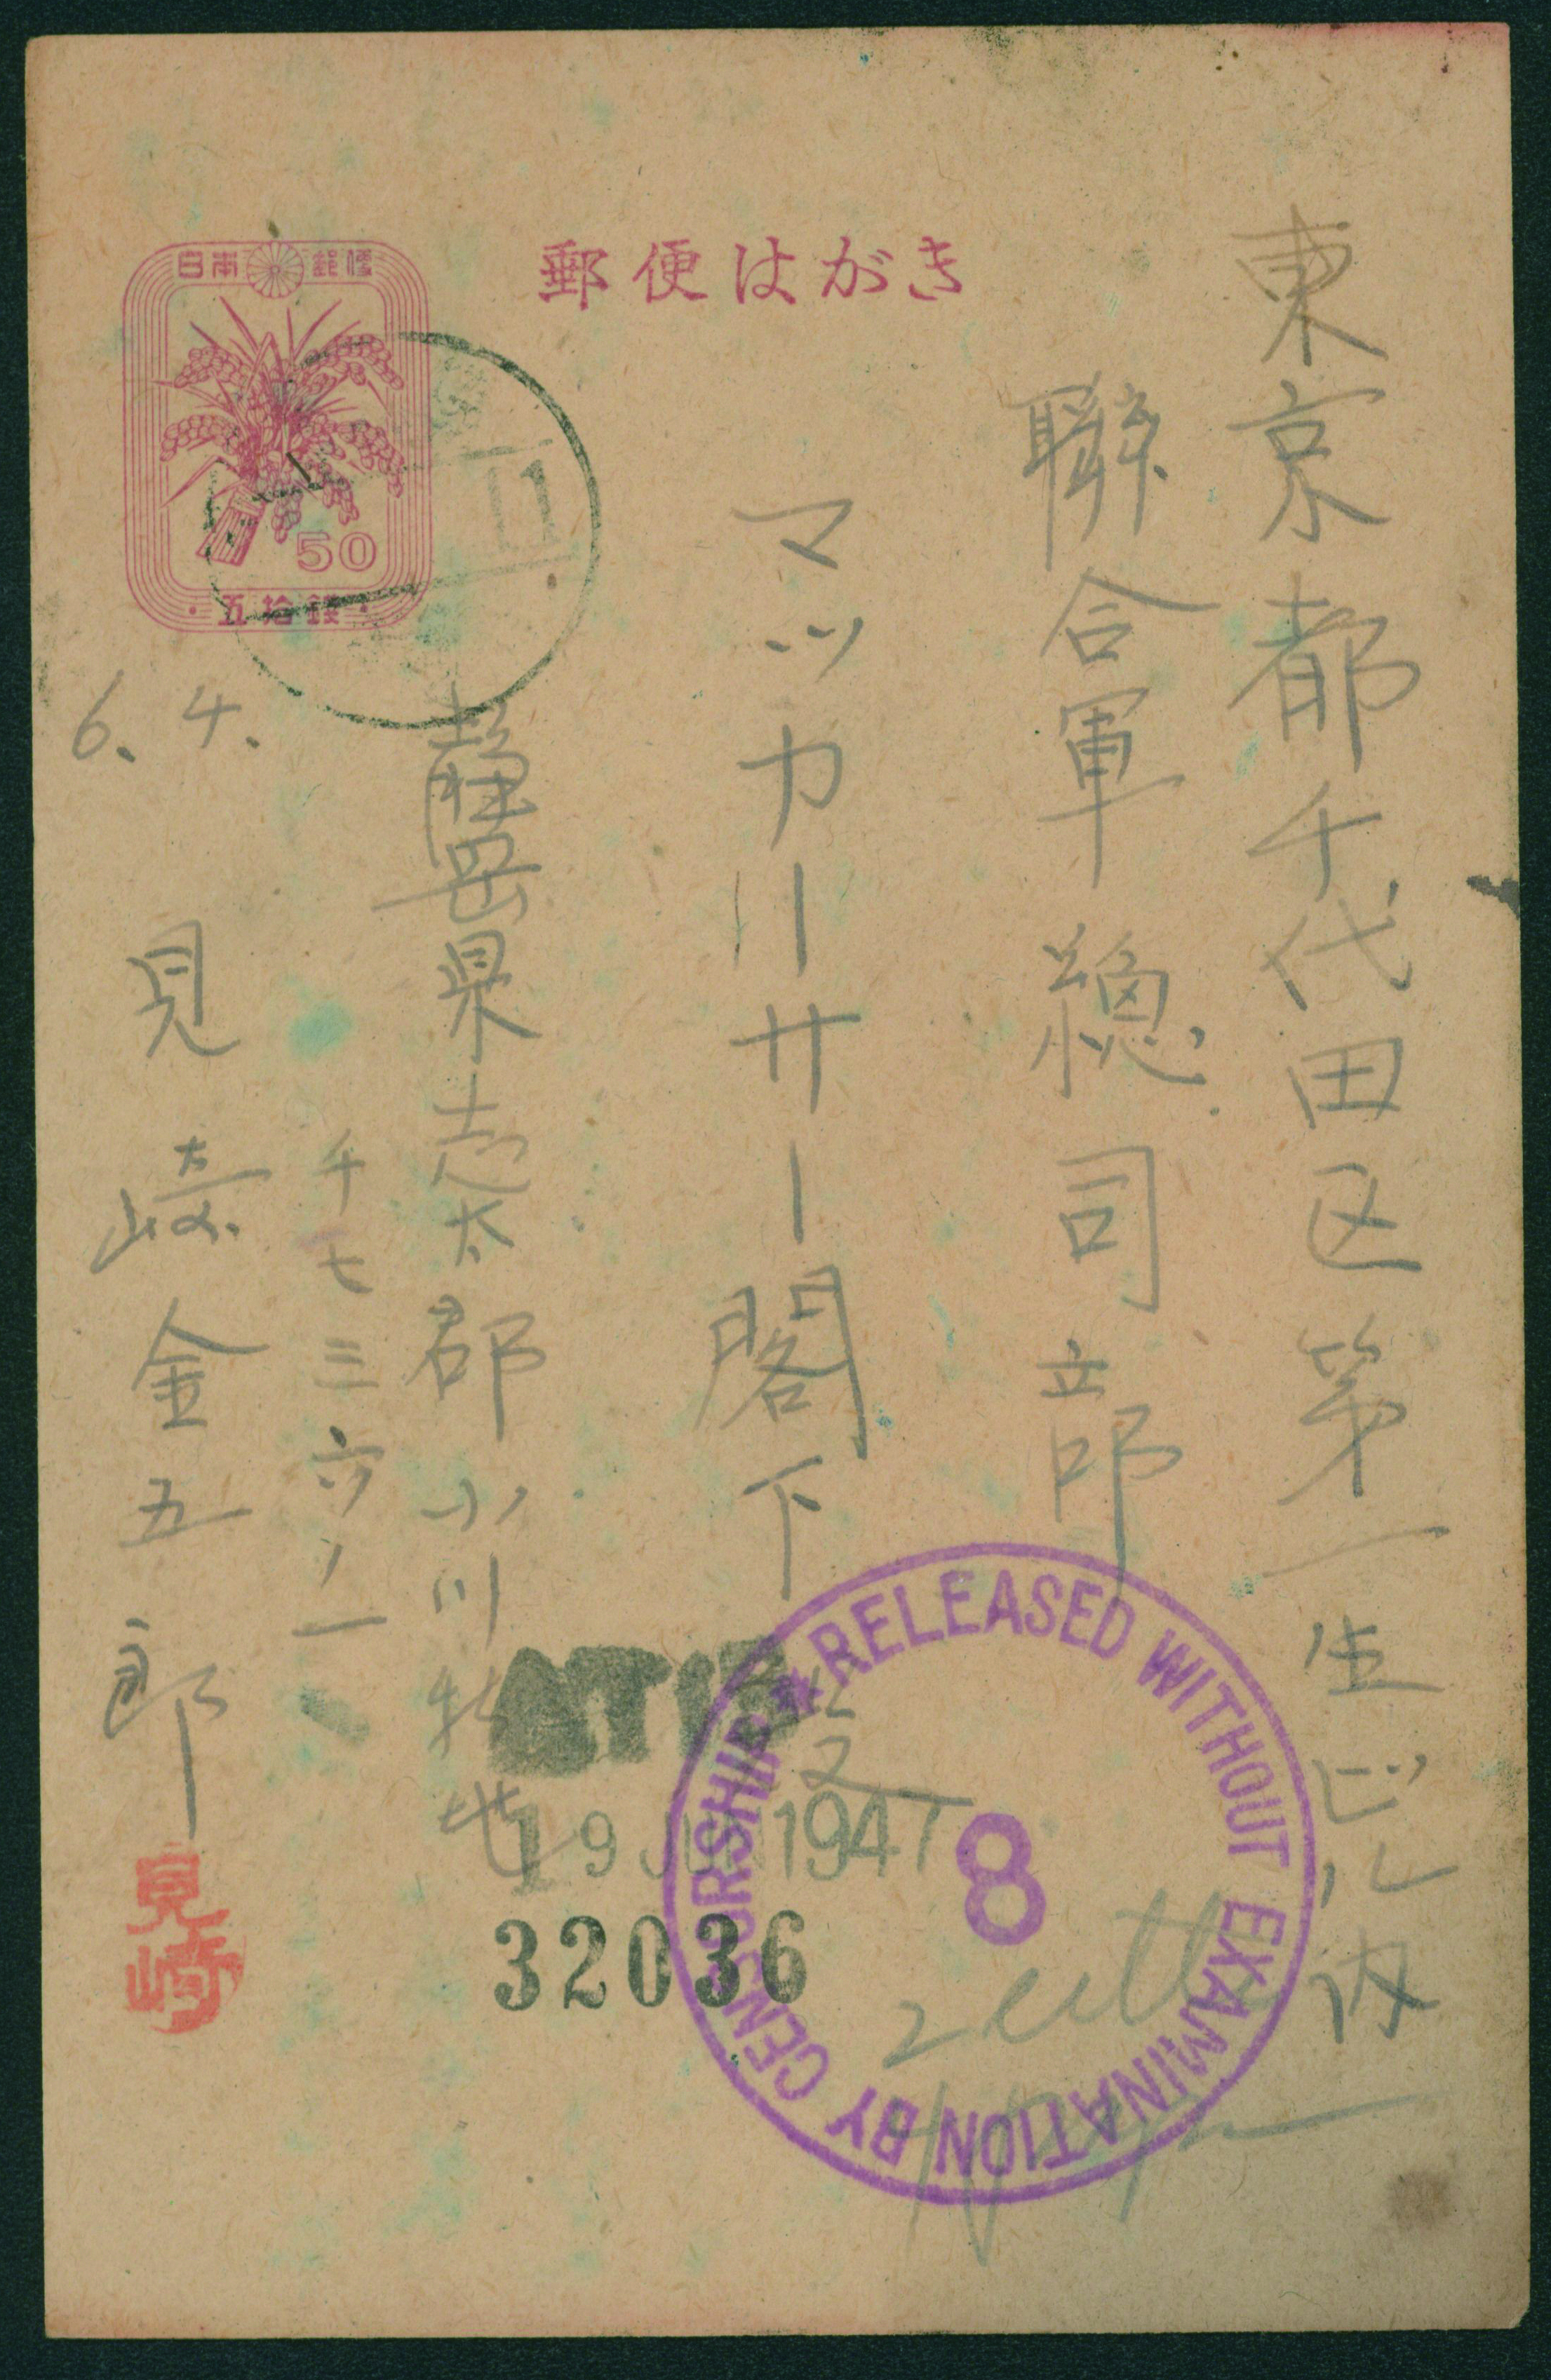 郵便はがき
日本郵便
50
五拾銭
東京都千代田区第一生ビル内
聯合軍総司部
マッカーサー閣下
静岡県志太郡小川
千七三六ノ一
見崎金五郎
見崎
6.4.
ATIS
19 JUN 1947
32036
RELEASED WITHOUT EXAMINATION BY CENSORSHIP
8